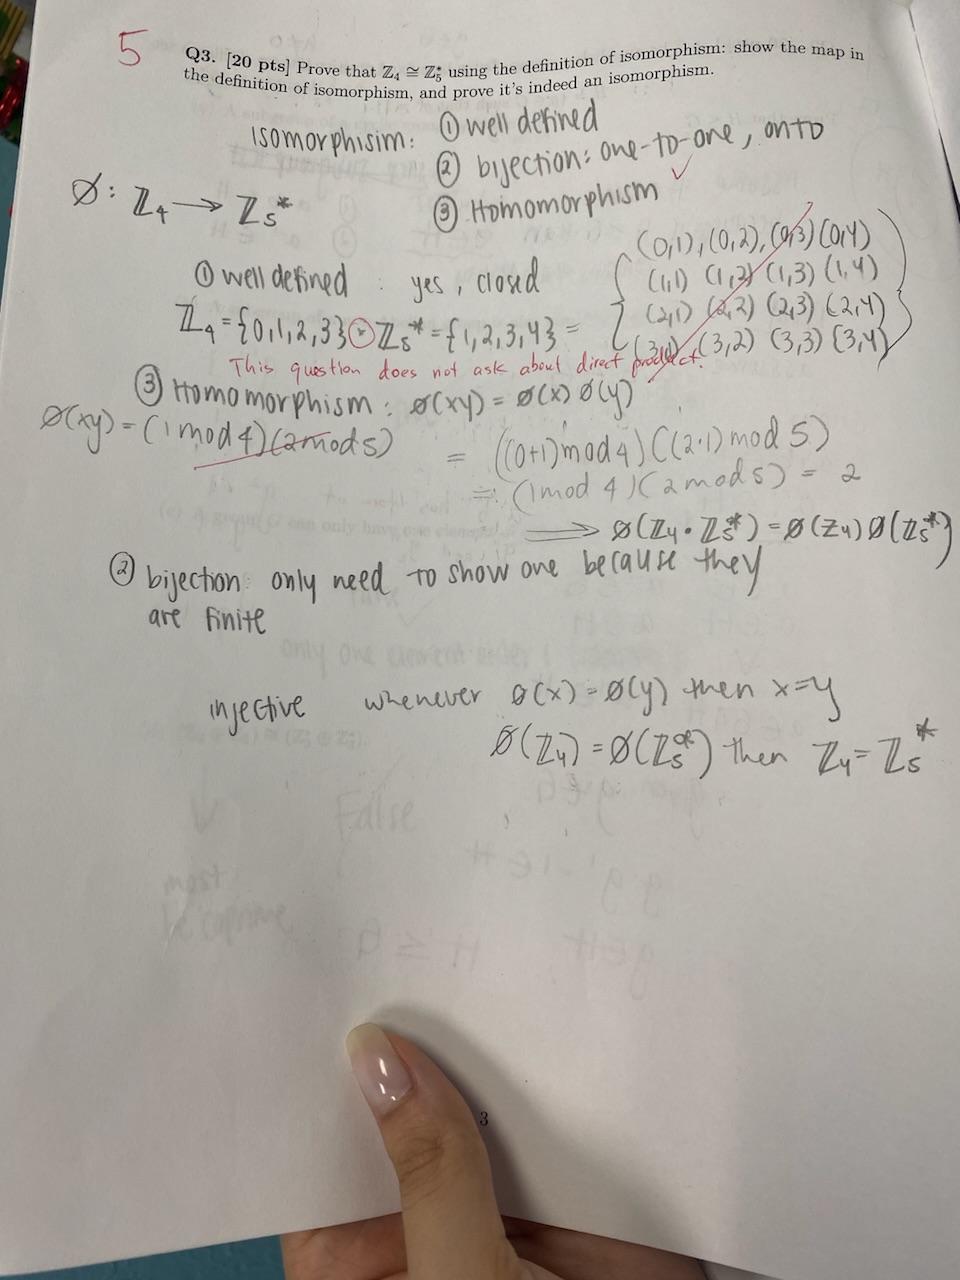 5
Q3. [20 pts] Prove that ℤ₄ ≅ ℤ₅* using the definition of isomorphism: show the map in
the definition of isomorphism, and prove it's indeed an isomorphism.
Isomorphisim: ① well defined
② bijection: one-to-one, onto
③ Homomorphism ✓
Ø: ℤ₄ → ℤ₅*
① well defined : yes, closed
(0,1), (0,2), (0,3) (0,4)
(1,1) (1,2) (1,3) (1,4)
(2,1) (2,2) (2,3) (2,4)
(3,1) (3,2) (3,3) (3,4)
ℤ₄ = {0,1,2,3} · ℤ₅* = {1,2,3,4} =
This question does not ask about direct product.
③ Homomorphism: ø(xy) = ø(x) ø(y)
ø(xy) = (1 mod 4)(2 mod 5) = ((0+1) mod 4)((2·1) mod 5)
= (1 mod 4)(2 mod 5) = 2
⟹ ø(ℤ₄ · ℤ₅*) = ø(ℤ₄) ø(ℤ₅*)
② bijection: only need to show one because they
are finite
injective whenever ø(x) = ø(y) then x=y
ø(ℤ₄) = ø(ℤ₅*) then ℤ₄ = ℤ₅*
False
must
be coprime
3